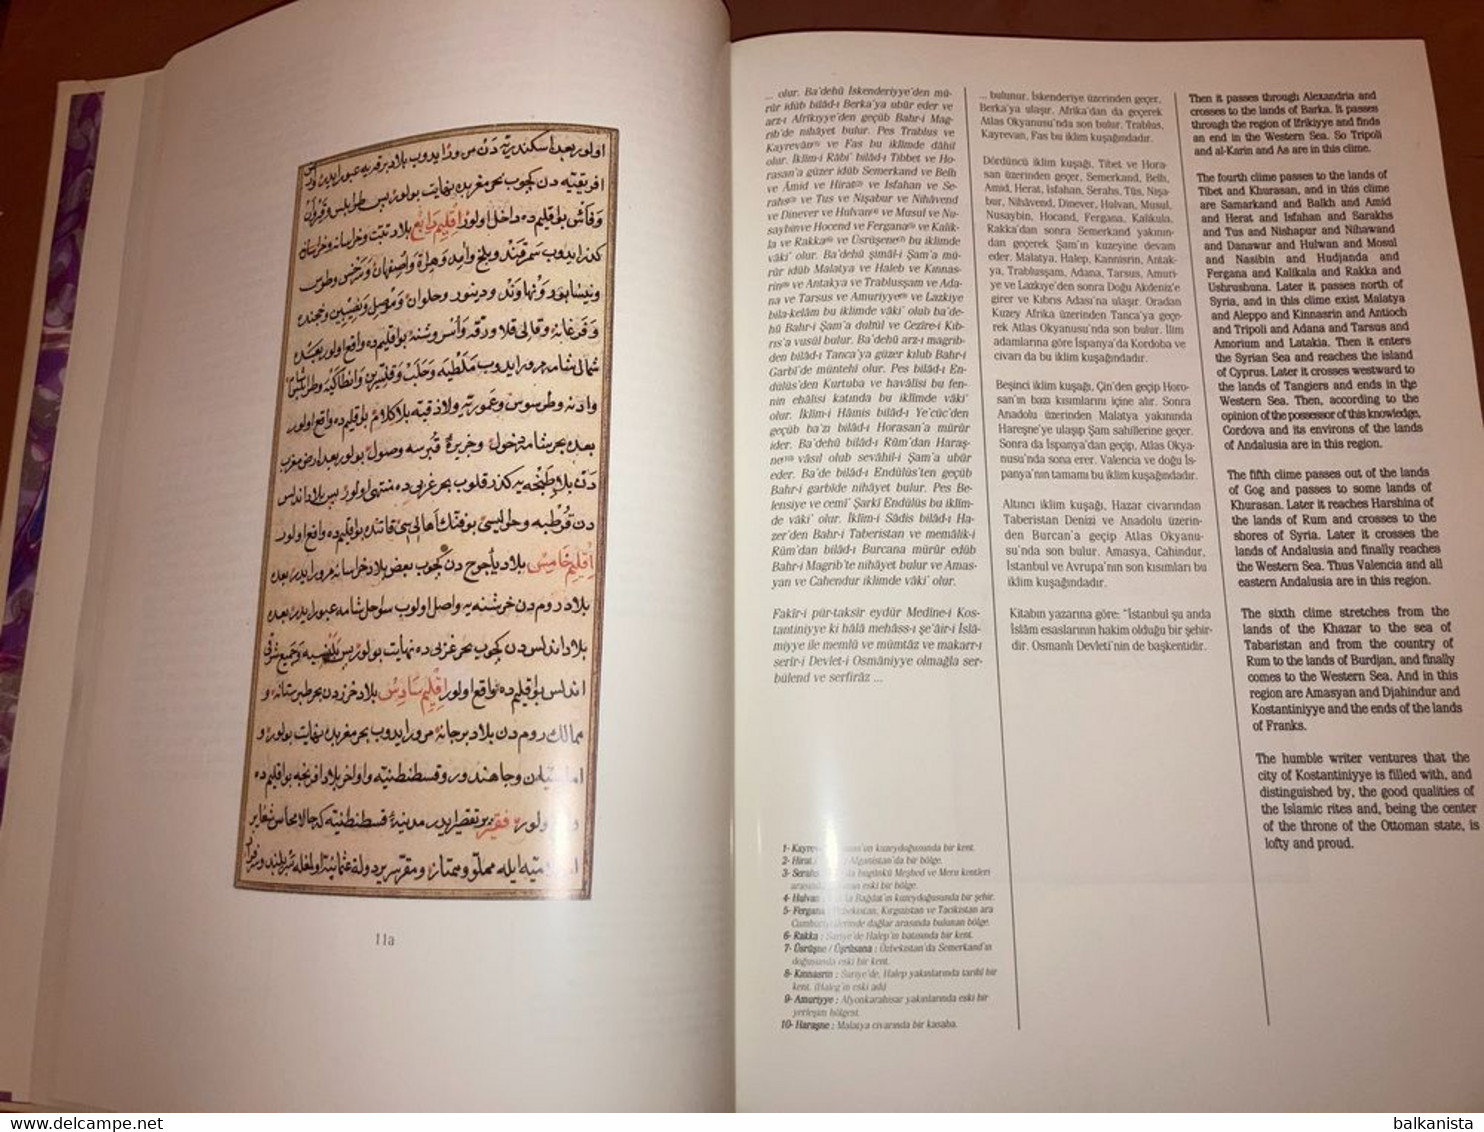 اولور بعده اسكندريه دن مرور ايدوب بلاد برقه يه عبور ايدر و ارض
افريقيه دن كچوب بحر مغربده نهايت بولور پس طرابلس و قيروان
و فاس بو اقليمده داخل اولور اقليم رابع بلاد تبت و خراسانه و خراسان
كذر ايدوب سمرقند و بلخ و آمد و هراة و اصفهان و سرخس و طوس
و نيسابور و نهاوند و دينور و حلوان و موصل و نصيبين و خجنده
و فرغانه و قالى قلا و رقه و اسروشنه بو اقليمده واقع اولور بعده
شمالى شامه مرور ايدوب ملطيه و حلب و قنسرين و انطاكيه و طرابلس
و ادنه و طرسوس و عموريه و لاذقيه بلا كلام بو اقليمده واقع اولور
بعده بحر شامه دخول و جزيرۀ قبرسه وصول بولور بعده ارض مغرب
دن بلاد طنجه يه كذر قلوب بحر غربى ده منتهى اولور پس بلاد اندلس
دن قرطبه و حواليسى بو فنك اهاليسى قاتنده بو اقليمده واقع اولور
اقليم خامس بلاد يأجوج دن كچوب بعض بلاد خراسانه مرور ايدر بعده
بلاد روم دن خرشنه يه واصل اولوب سواحل شامه عبور ايدر بعده
بلاد اندلس دن كچوب بحر غربى ده نهايت بولور پس بلنسيه و جميع شرقى
اندلس بو اقليمده واقع اولور اقليم سادس بلاد خزر دن بحر طبرستانه و
ممالك روم دن بلاد برجانه مرور ايدوب بحر مغربده نهايت بولور و
اماسيان و جاهندور و قسطنطنيه و اواخر بلاد افرنجه بو اقليمده
اولور فقير پر تقصير ايدر مدينۀ قسطنطنيه كه حالا محاسن شعاير
اسلاميه ايله مملو و ممتاز و مقر سرير دولة عثمانيه اولمغله سربلند و سرفراز
11a
... olur. Ba'dehû İskenderiyye'den mü-
rûr idüb bilâd-ı Berka'ya ubûr eder ve
arz-ı Afrîkıyye'den geçüb Bahr-i Mag-
rib'de nihâyet bulur. Pes Trablus ve
Kayrevân⁽¹⁾ ve Fas bu iklîmde dâhil
olur. İklîm-i Râbi' bilâd-ı Tibbet ve Ho-
rasan'a güzer idüb Semerkand ve Belh
ve Âmid ve Hirat⁽²⁾ ve Isfahan ve Se-
rahs⁽³⁾ ve Tus ve Nişabur ve Nihâvend
ve Dinever ve Hulvan⁽⁴⁾ ve Musul ve Nu-
saybin ve Hocend ve Fergana⁽⁵⁾ ve Kalik-
la ve Rakka⁽⁶⁾ ve Üsrüşene⁽⁷⁾ bu iklîmde
vâki' olur. Ba'dehû şimâl-i Şam'a mü-
rûr idüb Malatya ve Haleb ve Kınnas-
rin⁽⁸⁾ ve Antakya ve Trablusşam ve Ada-
na ve Tarsus ve Amuriyye⁽⁹⁾ ve Lazkiye
bila-kelâm bu iklîmde vâki' olub ba'de-
hû Bahr-i Şam'a duhûl ve Cezîre-i Kıb-
rıs'a vusûl bulur. Ba'dehû arz-ı magrib-
den bilâd-ı Tanca'ya güzer kılub Bahr-i
Garbî'de müntehî olur. Pes bilâd-ı En-
dülüs'den Kurtuba ve havâlîsi bu fen-
nin ehâlîsi katında bu iklîmde vâki'
olur. İklîm-i Hâmis bilâd-ı Ye'cüc'den
geçüb ba'zı bilâd-ı Horasan'a mürûr
ider. Ba'dehû bilâd-ı Rûm'dan Haraş-
ne⁽¹⁰⁾ vâsıl olub sevâhil-i Şam'a ubûr
eder. Ba'de bilâd-ı Endülüs'ten geçüb
Bahr-i garbîde nihâyet bulur. Pes Be-
lensiye ve cemî' Şarkî Endülüs bu iklîm-
de vâki' olur. İklîm-i Sâdis bilâd-ı Ha-
zer'den Bahr-i Taberistan ve memâlik-i
Rûm'dan bilâd-ı Burcana mürûr edüb
Bahr-i Magrib'te nihâyet bulur ve Amas-
yan ve Cahendur iklîmde vâki' olur.
Fakîr-i pür-taksîr eydür Medîne-i Kos-
tantiniyye ki hâlâ mehâss-ı şe'âir-i İslâ-
miyye ile memlû ve mümtâz ve makarr-ı
serîr-i Devlet-i Osmâniyye olmağla ser-
bülend ve serfirâz ...
1- Kayrevan kuzeydoğusunda bir kent.
2- Hirat / Afganistan'da bir bölge.
3- Serahs bugünkü Meşhed ve Merv kentleri
arasında eski bir bölge.
4- Hulvan : Bağdat'ın kuzeydoğusunda bir şehir.
5- Fergana : Özbekistan, Kırgızistan ve Tacikistan ara
Cumhuriyetlerinde dağlar arasında bulunan bölge.
6- Rakka : Suriye'de Halep'in batısında bir kent.
7- Üsrüşne / Üşrüsana : Özbekistan'da Semerkand'ın
doğusunda eski bir kent.
8- Kınnasrin : Suriye'de, Halep yakınlarında tarihî bir
kent. (Haleg'in eski adı)
9- Amuriyye : Afyonkarahisar yakınlarında eski bir
yerleşim bölgesi.
10- Haraşne : Malatya civarında bir kasaba.
... bulunur. İskenderiye üzerinden geçer,
Berka'ya ulaşır. Afrika'dan da geçerek
Atlas Okyanusu'nda son bulur. Trablus,
Kayrevan, Fas bu iklim kuşağındadır.
Dördüncü iklim kuşağı, Tibet ve Hora-
san üzerinden geçer, Semerkand, Belh,
Amid, Herat, İsfahan, Serahs, Tûs, Nişa-
bur, Nihâvend, Dinever, Hulvan, Musul,
Nusaybin, Hocand, Fergana, Kalikula,
Rakka'dan sonra Semerkand yakının-
dan geçerek Şam'ın kuzeyine devam
eder. Malatya, Halep, Kannisrin, Antak-
ya, Trablusşam, Adana, Tarsus, Amuri-
ye ve Lazkiye'den sonra Doğu Akdeniz'e
girer ve Kıbrıs Adası'na ulaşır. Oradan
Kuzey Afrika üzerinden Tanca'ya geçe-
rek Atlas Okyanusu'nda son bulur. İlim
adamlarına göre İspanya'da Kordoba ve
civarı da bu iklim kuşağındadır.
Beşinci iklim kuşağı, Çin'den geçip Horo-
san'ın bazı kısımlarını içine alır. Sonra
Anadolu üzerinden Malatya yakınında
Hareşne'ye ulaşıp Şam sahillerine geçer.
Sonra da İspanya'dan geçip, Atlas Okya-
nusu'nda sona erer. Valencia ve doğu İs-
panya'nın tamamı bu iklim kuşağındadır.
Altıncı iklim kuşağı, Hazar civarından
Taberistan Denizi ve Anadolu üzerin-
den Burcan'a geçip Atlas Okyanu-
su'nda son bulur. Amasya, Cahindur,
İstanbul ve Avrupa'nın son kısımları bu
iklim kuşağındadır.
Kitabın yazarına göre: "İstanbul şu anda
İslâm esaslarının hakim olduğu bir şehir-
dir. Osmanlı Devleti'nin de başkentidir.
Then it passes through Alexandria and
crosses to the lands of Barka. It passes
through the region of Ifrikiyye and finds
an end in the Western Sea. So Tripoli
and al-Karin and As are in this clime.
The fourth clime passes to the lands of
Tibet and Khurasan, and in this clime
are Samarkand and Balkh and Amid
and Herat and Isfahan and Sarakhs
and Tus and Nishapur and Nihawand
and Danawar and Hulwan and Mosul
and Nasibin and Hudjanda and
Fergana and Kalikala and Rakka and
Ushrushuna. Later it passes north of
Syria, and in this clime exist Malatya
and Aleppo and Kinnasrin and Antioch
and Tripoli and Adana and Tarsus and
Amorium and Latakia. Then it enters
the Syrian Sea and reaches the island
of Cyprus. Later it crosses westward to
the lands of Tangiers and ends in the
Western Sea. Then, according to the
opinion of the possessor of this knowledge,
Cordova and its environs of the lands
of Andalusia are in this region.
The fifth clime passes out of the lands
of Gog and passes to some lands of
Khurasan. Later it reaches Harshina of
the lands of Rum and crosses to the
shores of Syria. Later it crosses the
lands of Andalusia and finally reaches
the Western Sea. Thus Valencia and all
eastern Andalusia are in this region.
The sixth clime stretches from the
lands of the Khazar to the sea of
Tabaristan and from the country of
Rum to the lands of Burdjan, and finally
comes to the Western Sea. And in this
region are Amasyan and Djahindur and
Kostantiniyye and the ends of the lands
of Franks.
The humble writer ventures that the
city of Kostantiniyye is filled with, and
distinguished by, the good qualities of
the Islamic rites and, being the center
of the throne of the Ottoman state, is
lofty and proud.
www.delcampe.net
balkanista